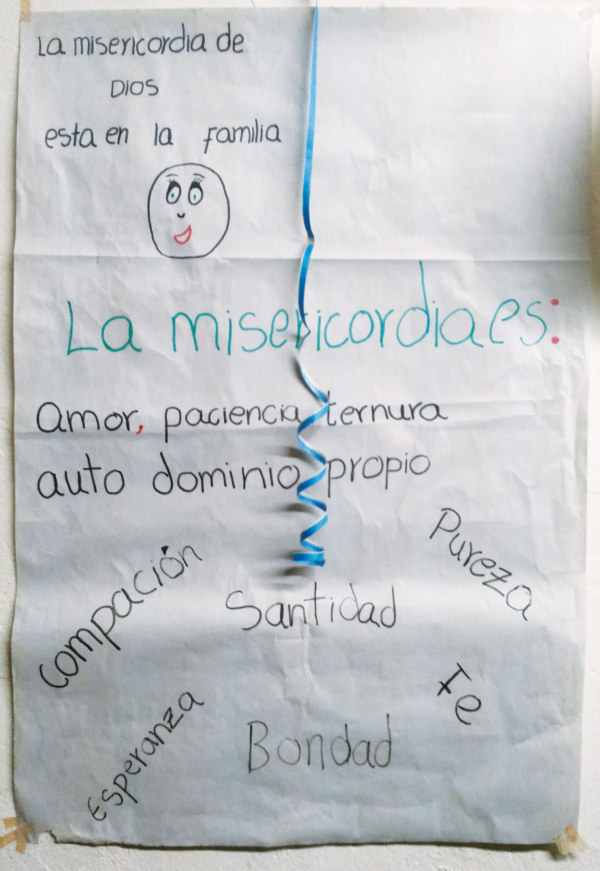 La misericordia de
DIOS
esta en la familia
La misericordia es:
Amor, paciencia ternura
auto dominio propio
Compación
Pureza
Santidad
Fe
Esperanza
Bondad